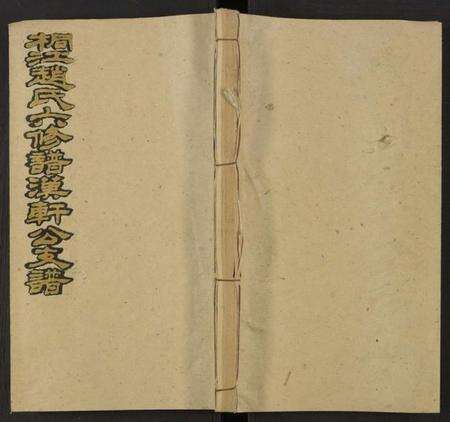 棡江趙氏六修譜漢軒公支譜